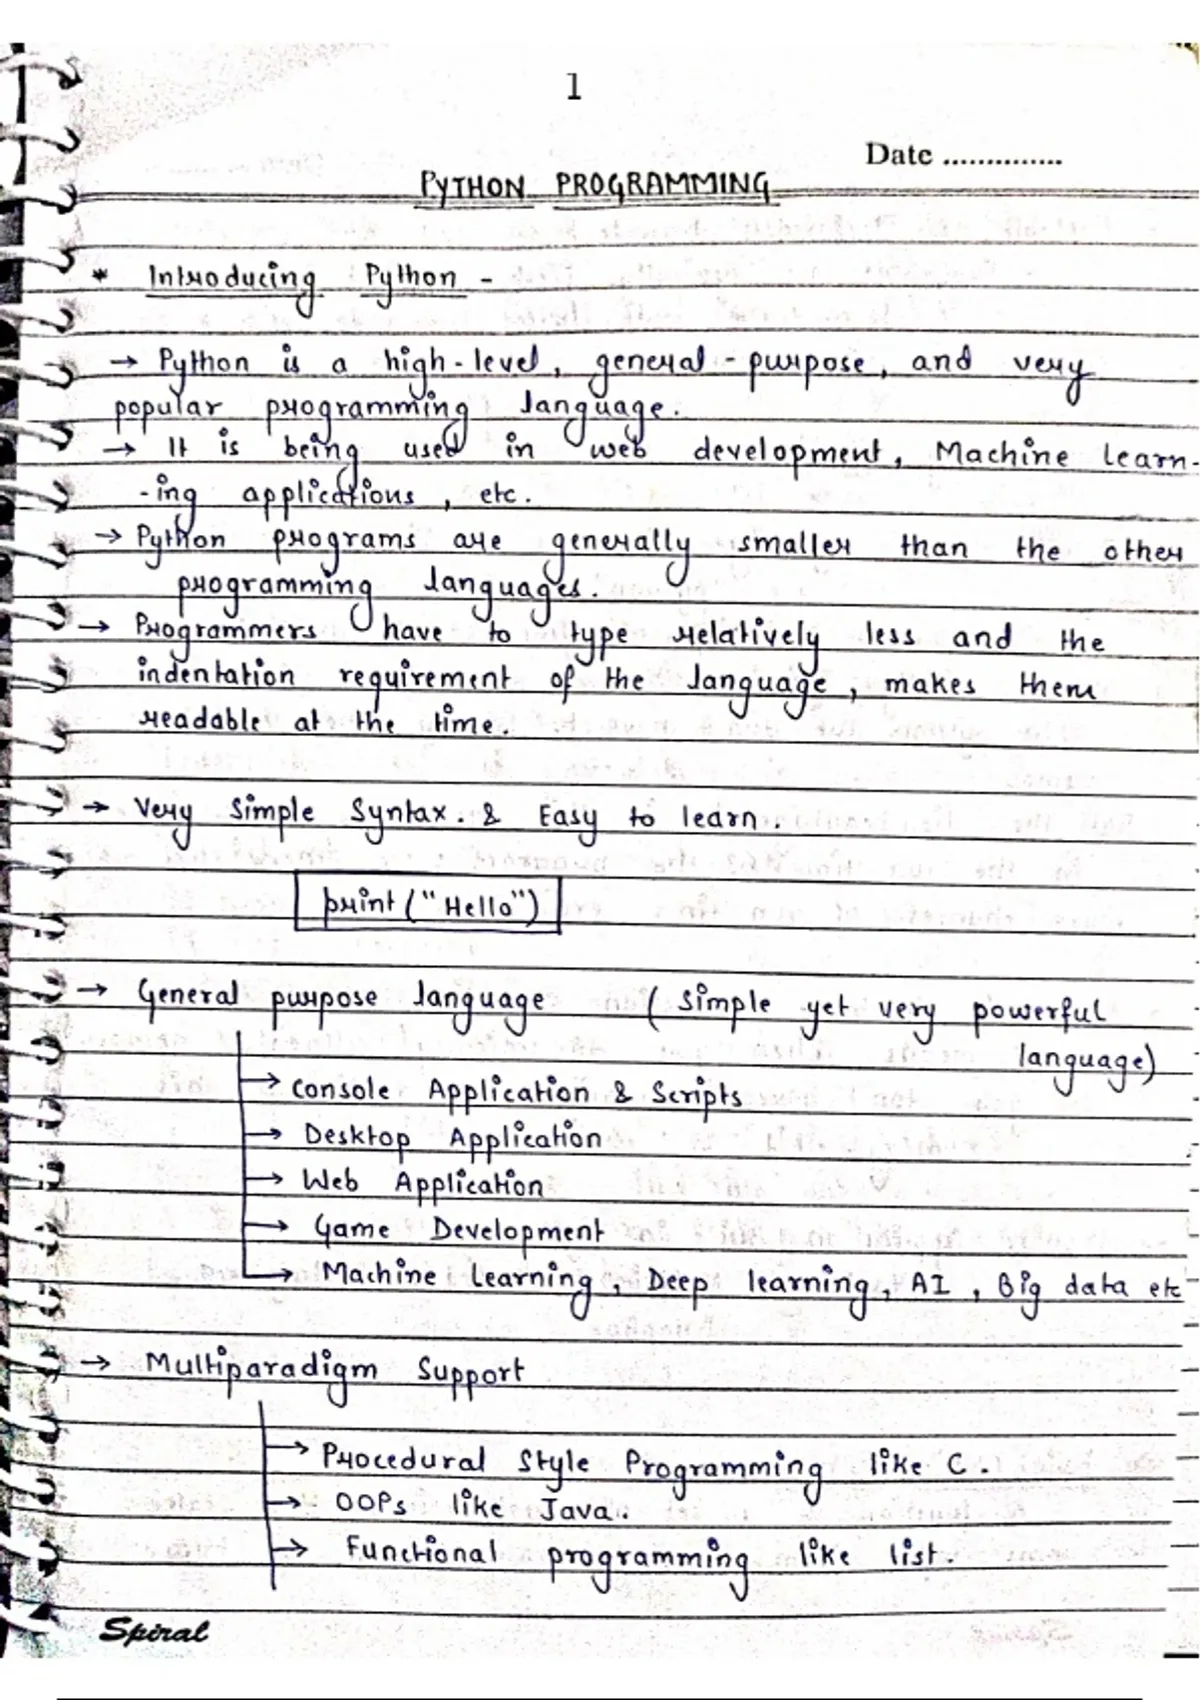 1
Date ..............
PYTHON PROGRAMMING
* Introducing Python -
→ Python is a high-level, general-purpose, and very
popular programming language.
→ It is being used in web development, Machine learn-
-ing applications, etc.
→ Python programs are generally smaller than the other
programming languages.
→ Programmers have to type relatively less and the
indentation requirement of the language, makes them
readable at the time.
→ Very Simple Syntax. & Easy to learn.
print ("Hello")
→ General purpose language (simple yet very powerful
language)
→ Console Application & Scripts
→ Desktop Application
→ Web Application
→ Game Development
→ Machine learning, Deep learning, AI, Big data etc
→ Multiparadigm Support
→ Procedural Style Programming like C.
→ OOPs like Java.
→ Functional programming like list.
Spiral